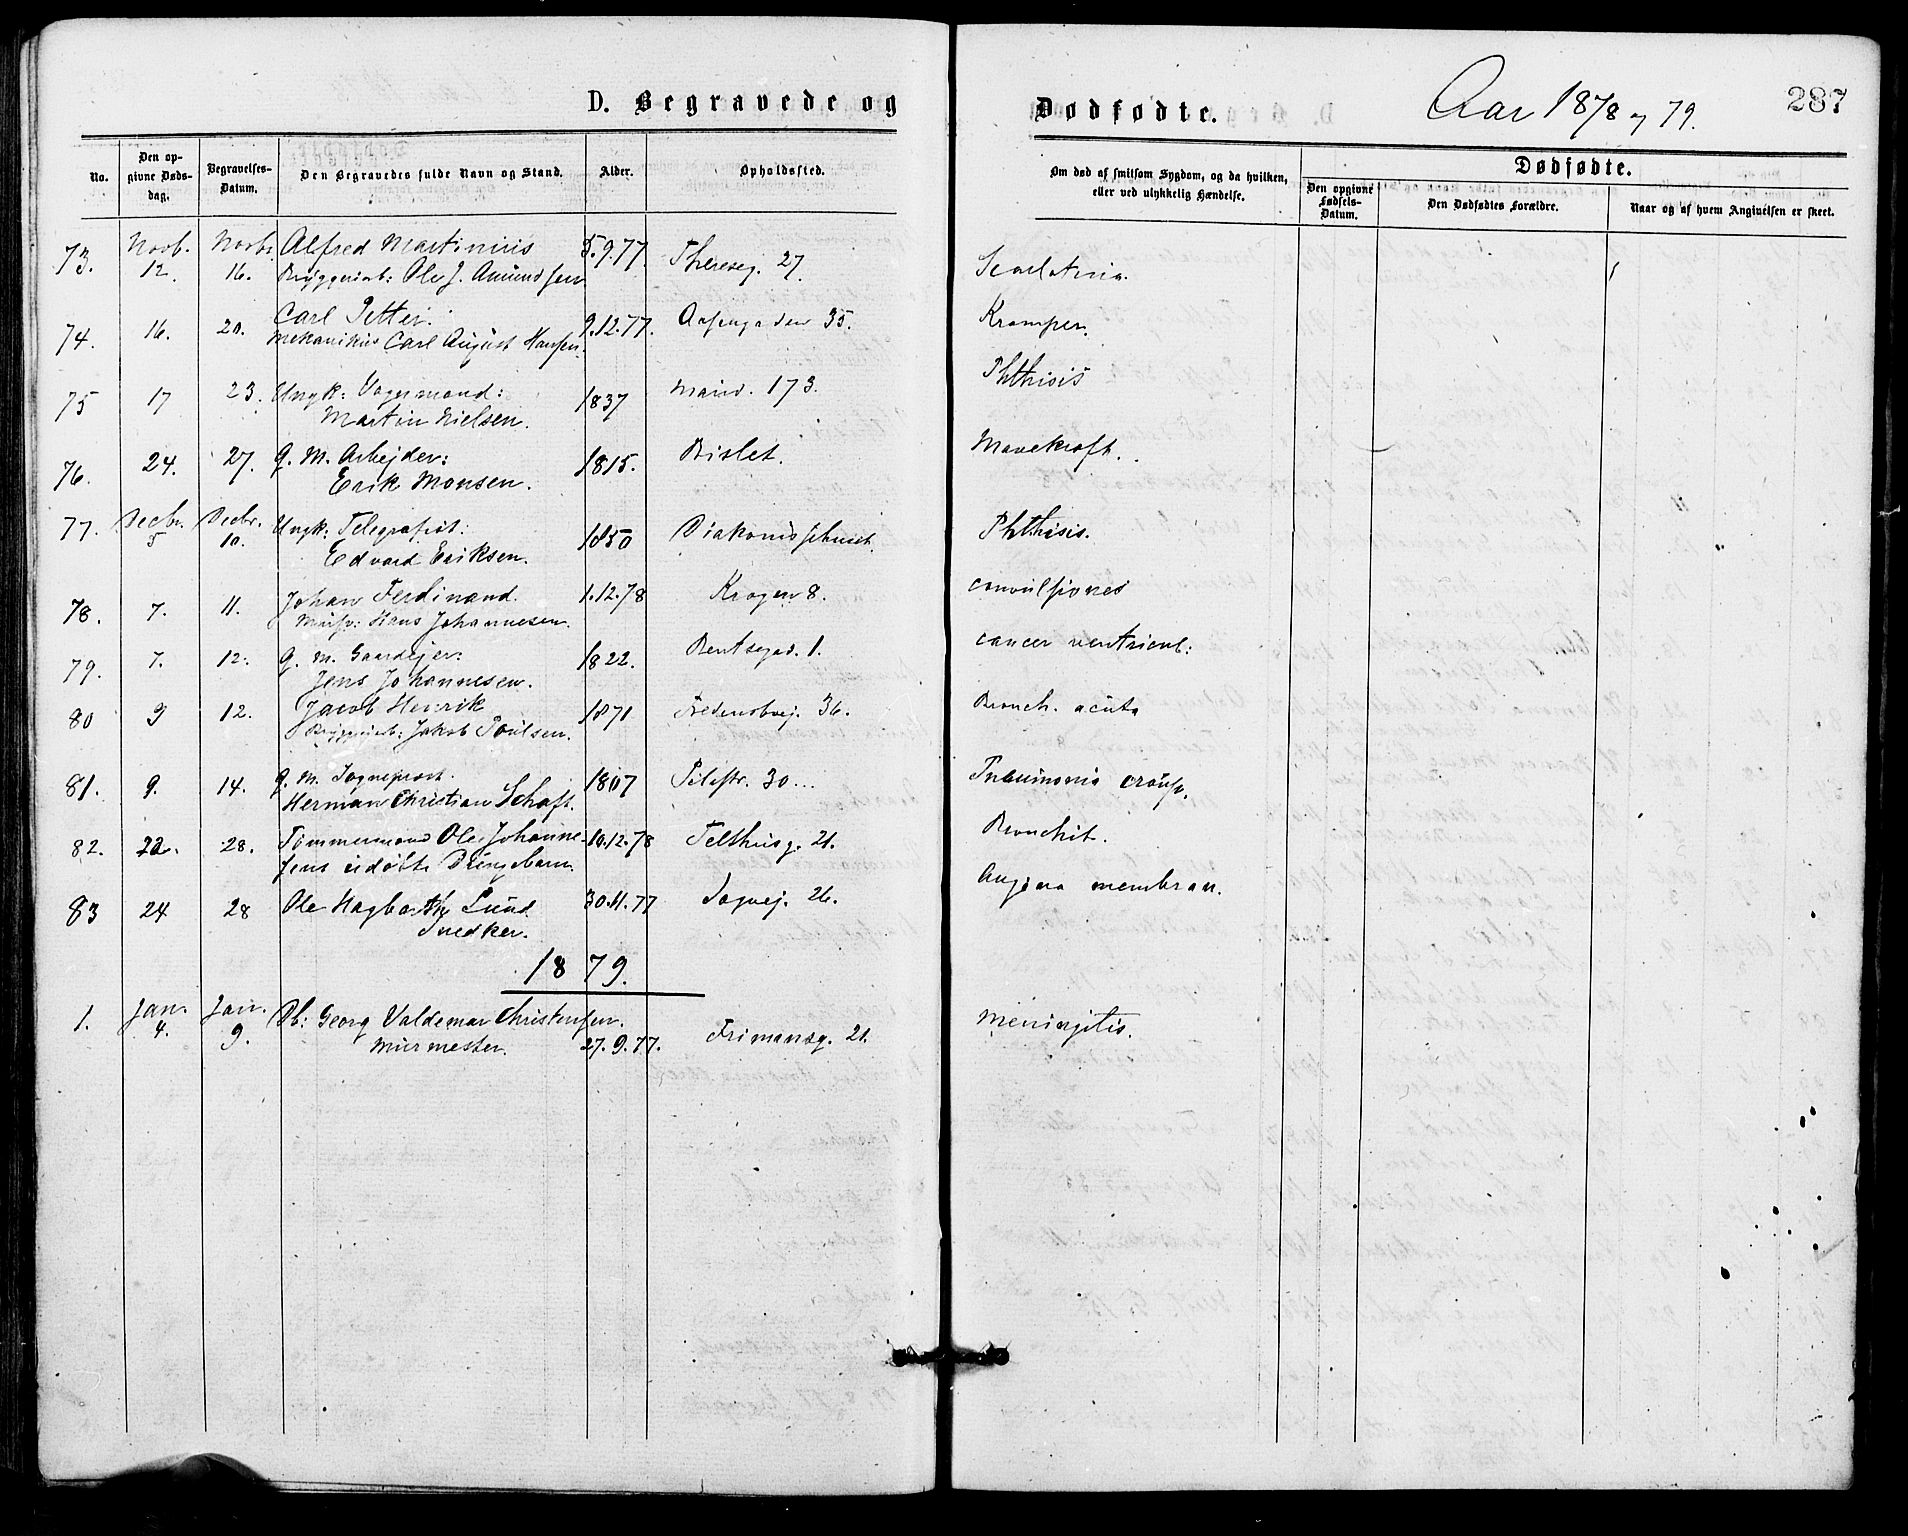 D. Begravede og
Dødfødte.
Aar 1878 og 79.
287
No.
Den opgivne Dødsdag.
Begravelses-Datum.
Den Begravedes fulde Navn og Stand.
Alder.
Opholdssted.
Om død af smitsom Sygdom, og da hvilken, eller ved ulykkelig Hændelse.
Dødfødte.
Den opgivne Fødsels-Datum.
Den Dødfødtes Forældre.
Naar og af hvem Angivelsen er skeet.
73. Novb. 12. Novbr. 16. Alfred Martinius 5.9.77. Thereseg. 27. Scarlatina.
Bryggeriarb: Ole J. Amundsen
74. 16. 20. Carl Petter. 9.12.77. 35. Kramper.
Mekanikus Carl August Hansen.
75 17 23. Ungk: Vognmand: 1837 Marid. 173. Phthisis
Martin Nielsen.
76. 24. 27. G. M. Arbejder: 1815. Bislet. Mavekræft.
Erik Monsen.
77. Decbr. 5 Decbr. 10. Ungk: Telegrafist: 1850 Diakonissehuset. Phthisis.
Edvard Eriksen.
78. 7. 11. Johan Ferdinand. 1.12.78 Krogen 8. convulsiones
Hans Johannesen.
79. 7. 12. G. M. Gaardejer: 1822. Bentsegad. 1. cancer ventricul:
Jens Johannesen.
80 9 12. Jacob Henrik 1871 36. Bronch. acuta
Bryggeriarb: Jakob Poulsen.
81. 9. 14. G. M. Sogneprest. 1807 Pilestr. 30... Pneumonia croup.
Herman Christian Schaft.
82. 22. 28. Tømmermand Ole Johanne- 10.12.78 Telthusg. 21. Bronchit.
sens udøbte Drengebarn.
83 24 28 Ole Hagbarth Lund 30.11.77 Sagvej. 26. Angina membran.
Snedker.
1879.
1. Jan. 4. Jan. 9. Db: Georg Valdemar Christensen. Frimansg. 21. Meningitis.
Murmester. 27.9.77.